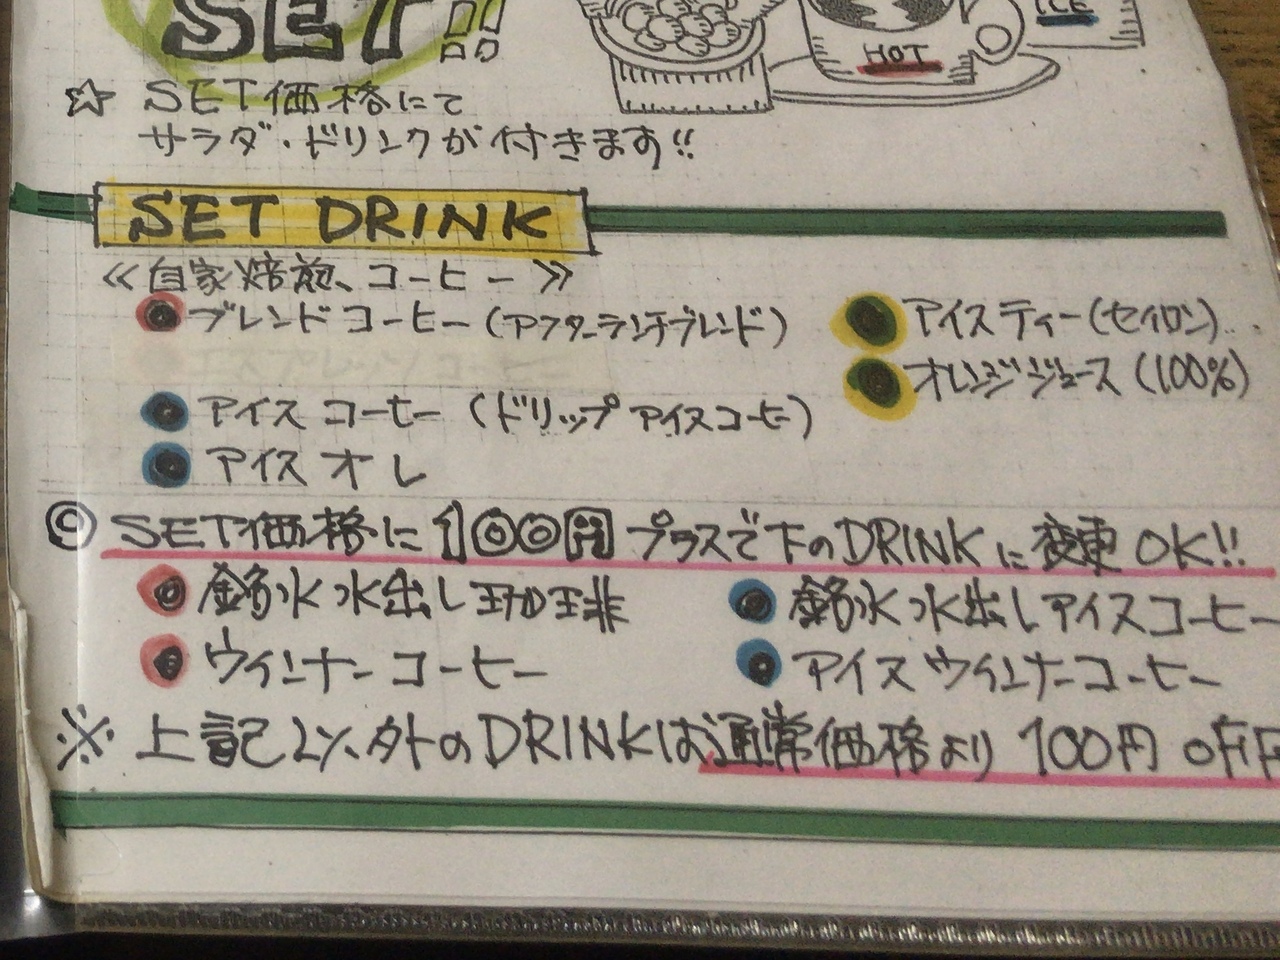 SET!!
HOT
ICE
☆ SET価格にて
サラダ・ドリンクが付きます!!
SET DRINK
≪自家焙煎、コーヒー≫
ブレンドコーヒー(アフターランチブレンド)
エスプレッソコーヒー
アイスコーヒー(ドリップアイスコーヒー)
アイスオレ
アイスティー(セイロン)
オレンジジュース(100%)
◎ SET価格に100円プラスで下のDRINKに変更OK!!
銘水水出し珈琲
ウィンナーコーヒー
銘水水出しアイスコーヒー
アイスウィンナーコーヒー
※上記以外のDRINKは通常価格より100円OFF